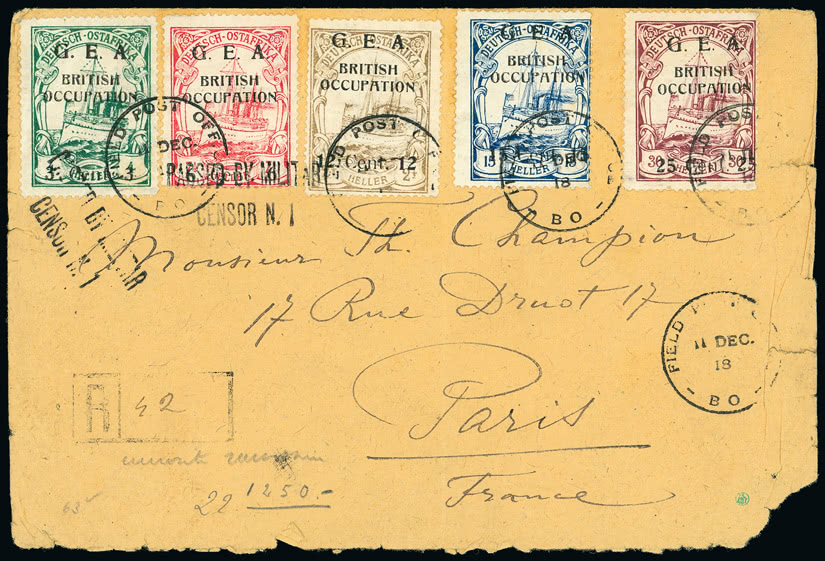 DEUTSCH-OSTAFRIKA
G. E. A.
BRITISH
OCCUPATION
4
4
HELLER
DEUTSCH-OSTAFRIKA
G. E. A.
BRITISH
OCCUPATION
6
6
DEUTSCH-OSTAFRIKA
G. E. A.
BRITISH
OCCUPATION
12 Cent. 12
HELLER
DEUTSCH-OSTAFRIKA
G. E. A.
BRITISH
OCCUPATION
15
HELLER
DEUTSCH-OSTAFRIKA
G. E. A.
BRITISH
OCCUPATION
25 Cent. 25
FIELD POST OFF
DEC.
- BO -
POST
18
BO -
PASSED BY MILITAR
CENSOR N. 1
CENSOR N. 1
Monsieur Th. Champion
17 Rue Druot 17
Paris
France
FIELD
11 DEC.
18
- BO -
R 42
22 1250.-